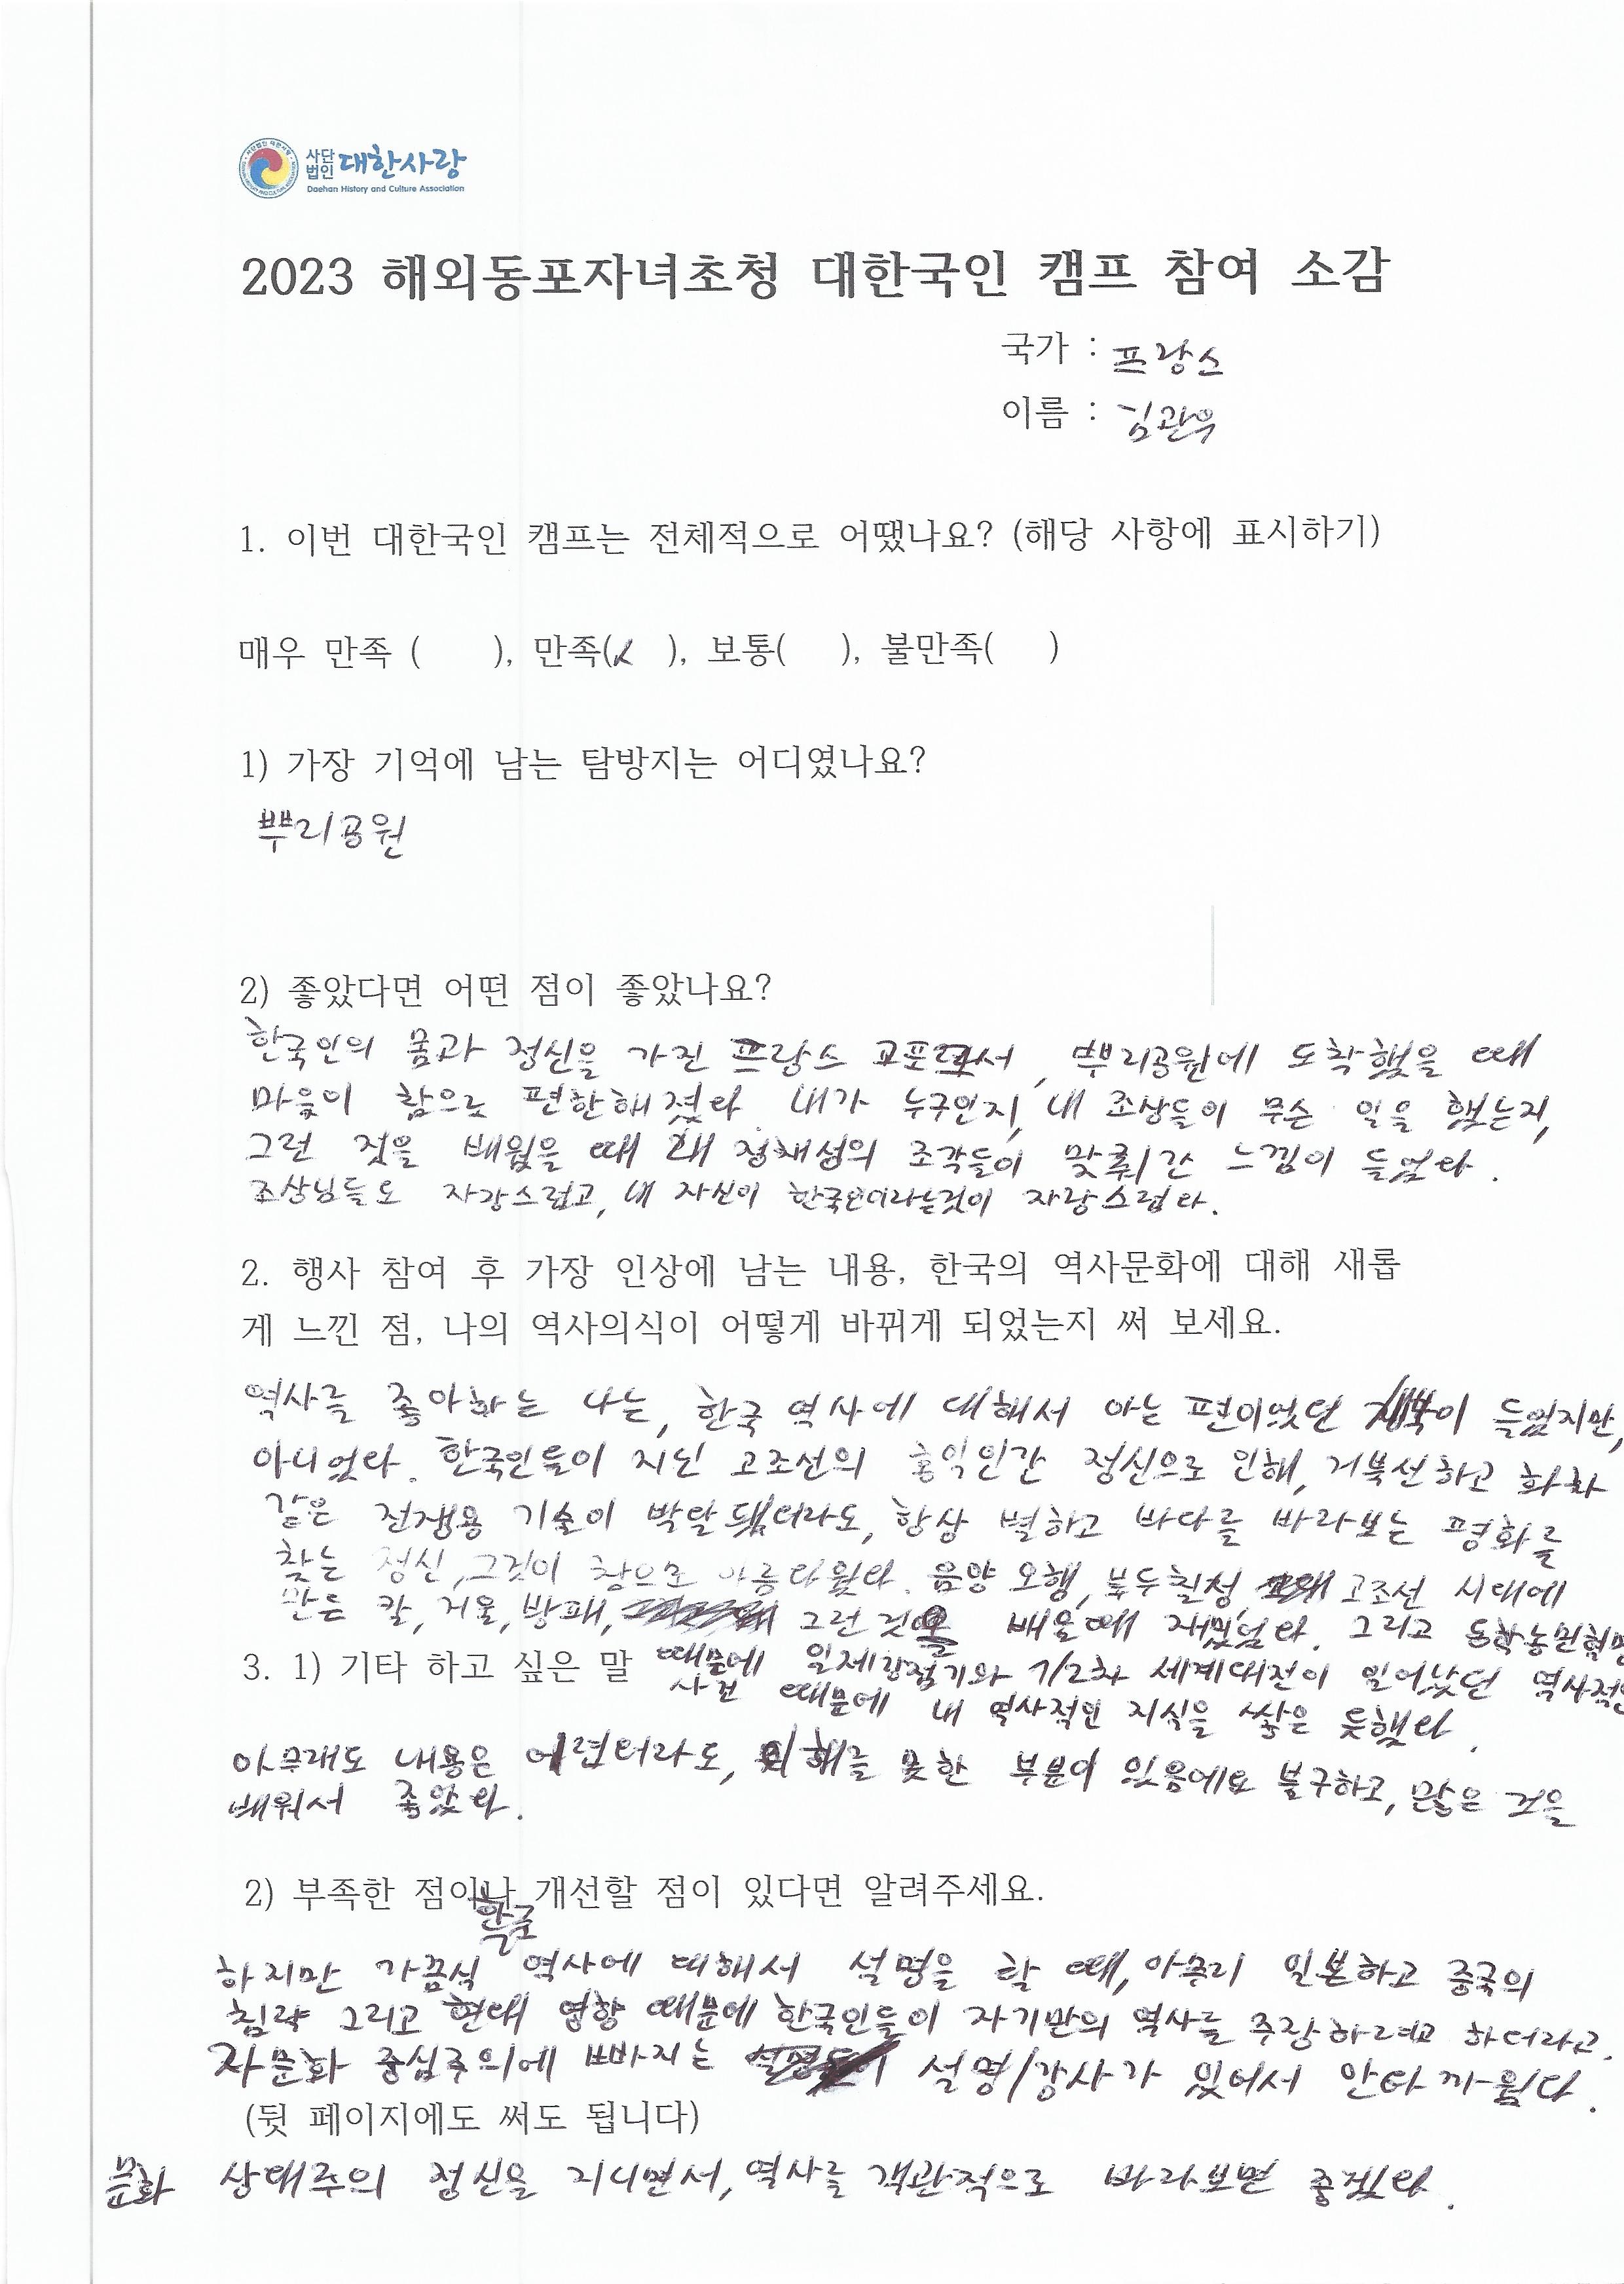 사단법인 대한사랑
Daehan History and Culture Association
2023 해외동포자녀초청 대한국인 캠프 참여 소감
국가 : 프랑스
이름 : 김관우
1. 이번 대한국인 캠프는 전체적으로 어땠나요? (해당 사항에 표시하기)
매우 만족 (    ), 만족(✓  ), 보통(    ), 불만족(    )
1) 가장 기억에 남는 탐방지는 어디였나요?
뿌리공원
2) 좋았다면 어떤 점이 좋았나요?
한국인의 몸과 정신을 가진 프랑스 교포로서, 뿌리공원에 도착했을 때
마음이 참으로 편한해졌다. 내가 누구인지, 내 조상들이 무슨 일을 했는지,
그런 것을 배웠을 때 내 정체성의 조각들이 맞춰간 느낌이 들었다.
조상님들도 자랑스럽고, 내 자신이 한국인이라는것이 자랑스럽다.
2. 행사 참여 후 가장 인상에 남는 내용, 한국의 역사문화에 대해 새롭
게 느낀 점, 나의 역사의식이 어떻게 바뀌게 되었는지 써 보세요.
역사를 좋아하는 나는, 한국 역사에 대해서 아는 편이었던 이 들었지만,
아니었다. 한국인들이 지닌 고조선의 홍익인간 정신으로 인해, 거북선하고 화차
같은 전쟁용 기술이 박탈 됐더라도, 항상 별하고 바다를 바라보는 평화를
찾는 정신, 그것이 참으로 아름다웠다. 음양 오행, 북두칠성, 고조선 시대에
만든 칼, 거울, 방패, 그런 것을 배울때 재밌었다. 그리고 동학농민혁명
3. 1) 기타 하고 싶은 말
때문에 일제강점기와 1/2차 세계대전이 일어났던 역사적인
사건 때문에 내 역사적인 지식을 쌓은 듯했다.
아무래도 내용은 어렵더라도, 이해를 못한 부분이 있음에도 불구하고, 많은 것을
배워서 좋았다.
2) 부족한 점이나 개선할 점이 있다면 알려주세요.
하지만 가끔식 한국 역사에 대해서 설명을 할 때, 아무리 일본하고 중국의
침략 그리고 현대 영향 때문에 한국인들이 자기만의 역사를 주장하려고 하더라고.
자문화 중심주의에 빠지는 설명/강사가 있어서 안타까웠다.
(뒷 페이지에도 써도 됩니다)
문화 상대주의 정신을 지니면서, 역사를 객관적으로 바라보면 좋겠다.